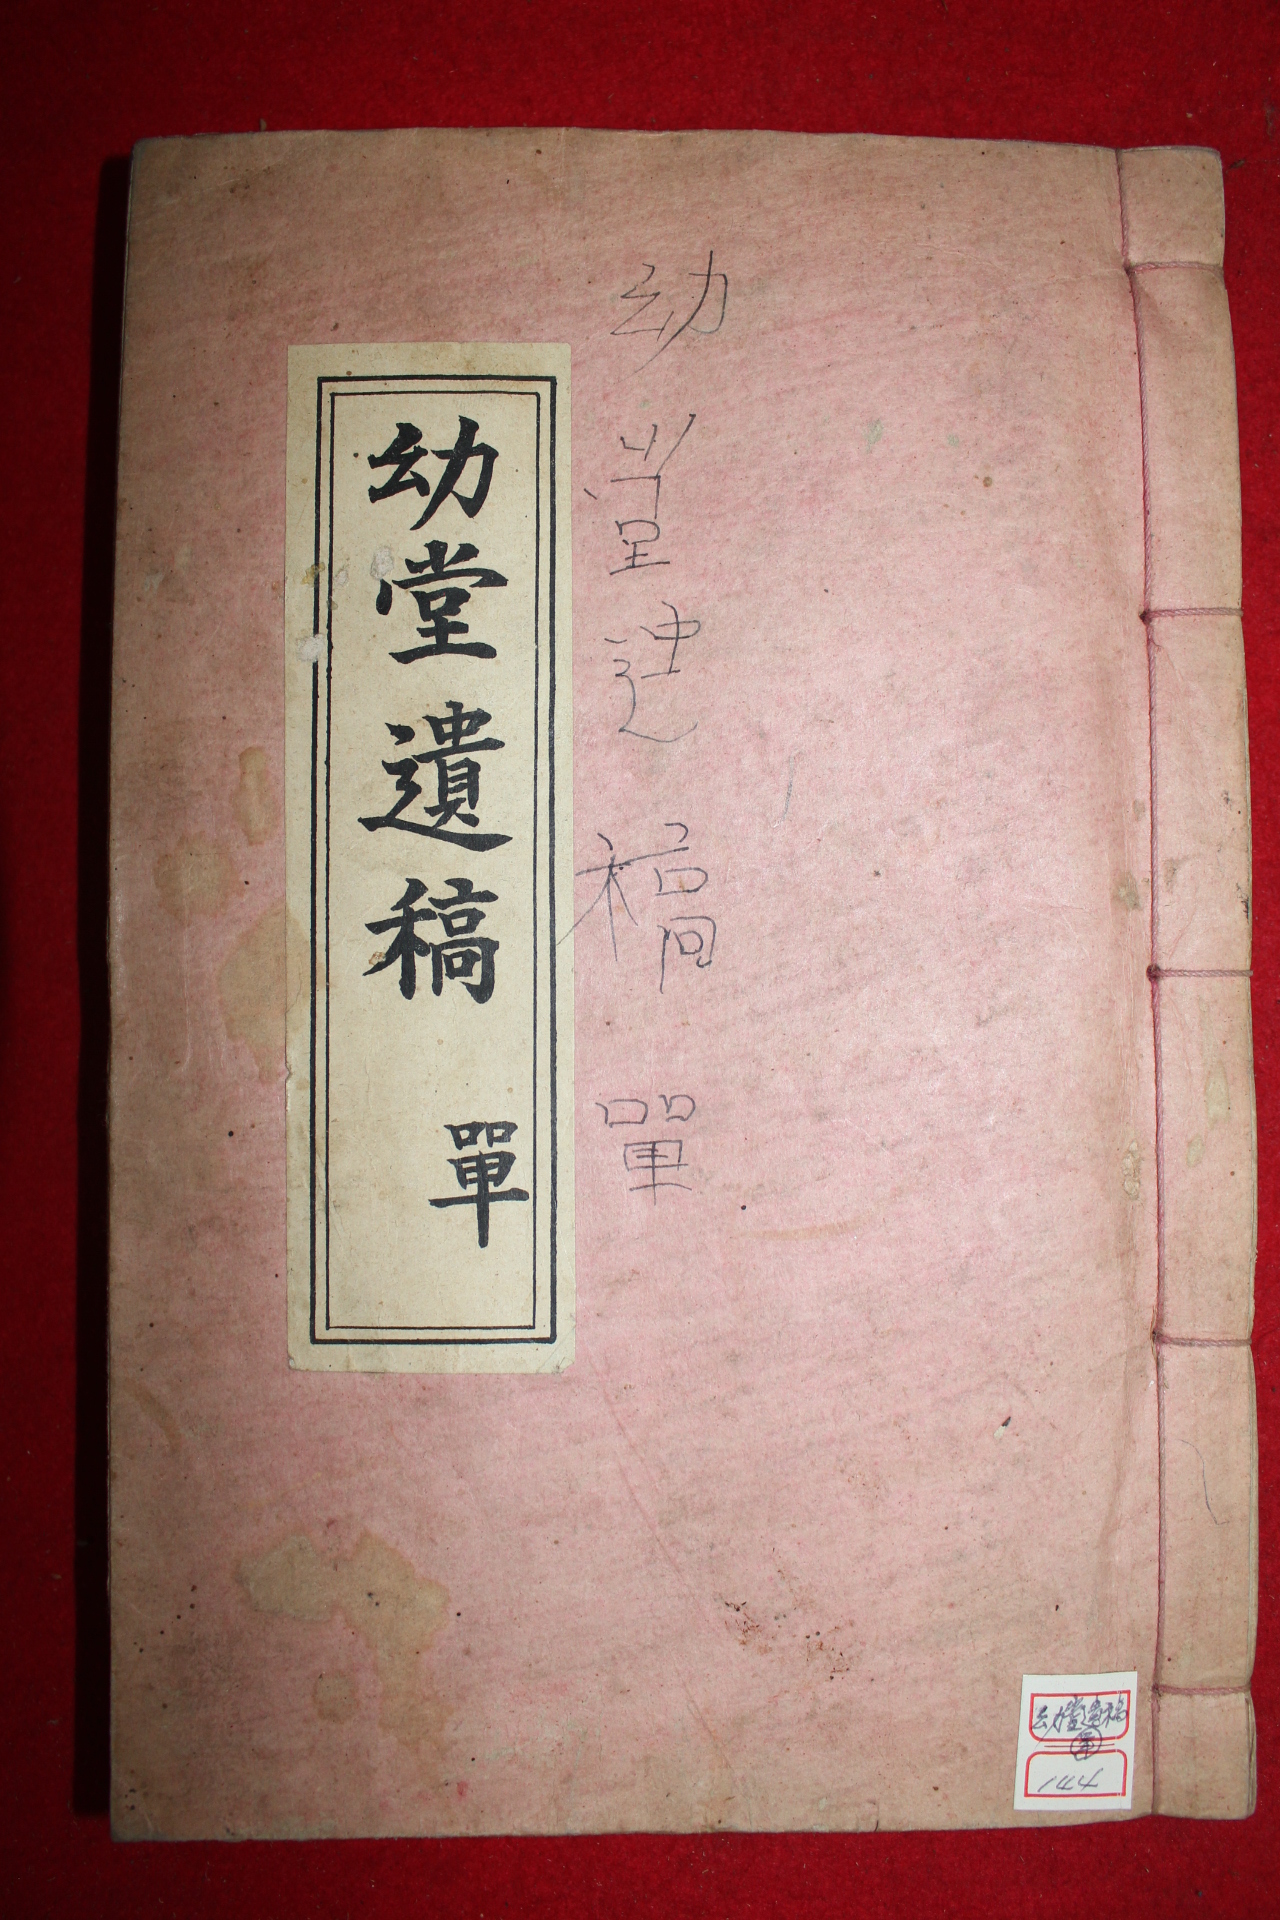 幼堂遺稿 單
幼堂遺稿 單
幼堂遺稿
單
144